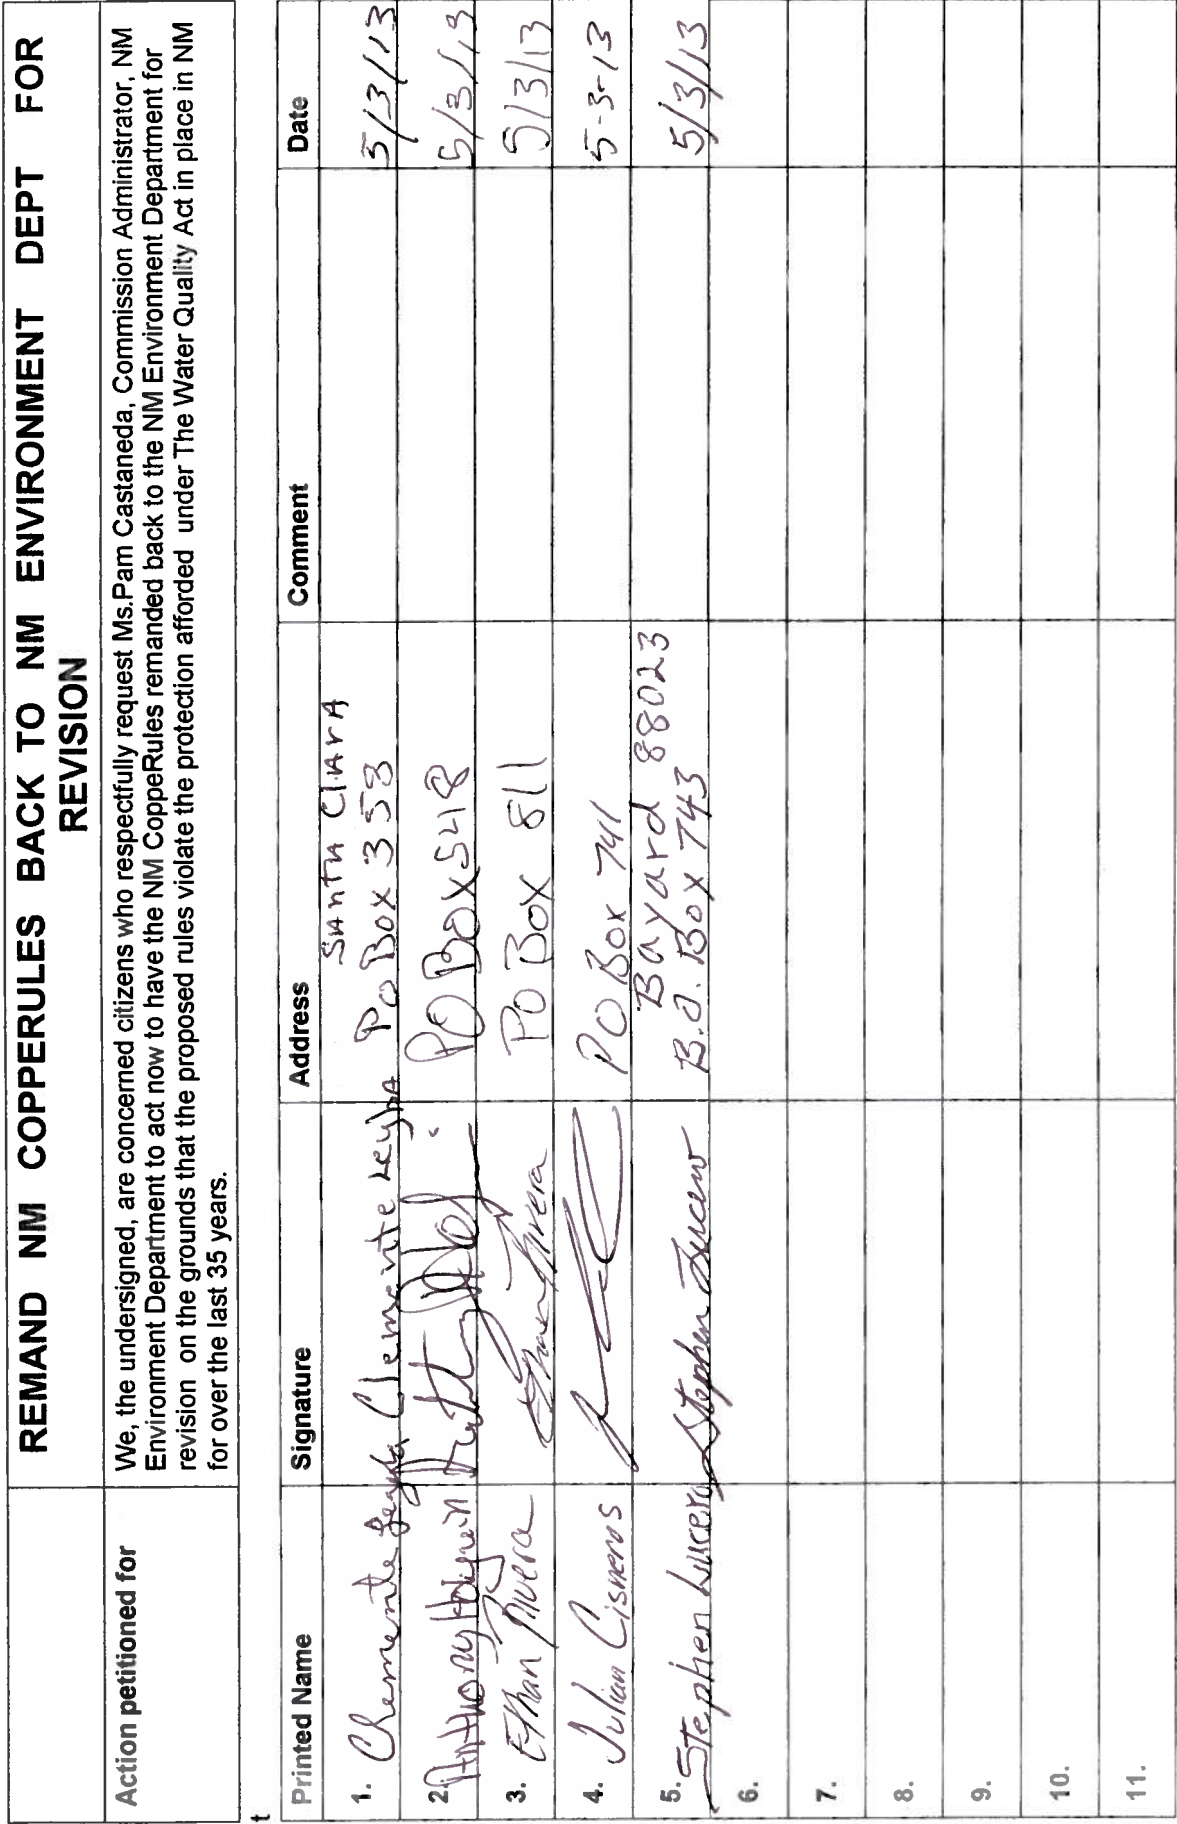 REMAND NM COPPERULES BACK TO NM ENVIRONMENT DEPT FOR
REVISION
Action petitioned for
We, the undersigned, are concerned citizens who respectfully request Ms.Pam Castaneda, Commission Administrator, NM
Environment Department to act now to have the NM CoppeRules remanded back to the NM Environment Department for
revision on the grounds that the proposed rules violate the protection afforded under The Water Quality Act in place in NM
for over the last 35 years.
t
Printed Name Signature Address Comment Date
Santa Clara
1. Clemente Leyba Clemente Leyba PO Box 353 5/3/13
2. Anthony PO Box 548 5/3/13
3. Ethan Rivera Ethan Rivera PO Box 811 5/3/13
4. Julian Cisneros PO Box 741 5-3-13
Bayard 88023
5. Stephen Lucero Stephen Lucero B.O. Box 743 5/3/13
6.
7.
8.
9.
10.
11.